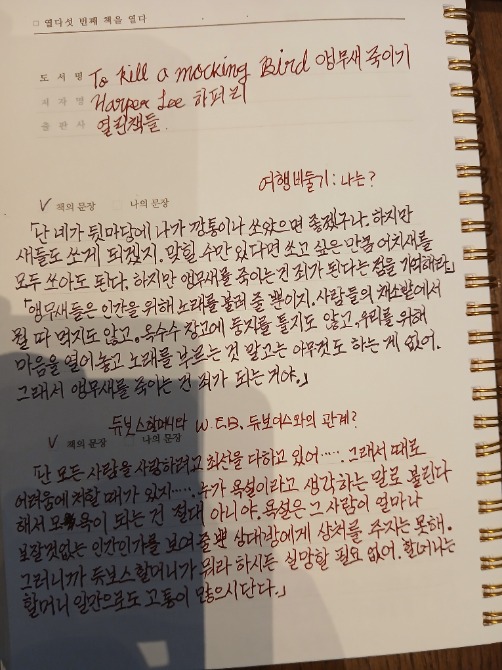 □ 열다섯 번째 책을 열다
도 서 명 To kill a mocking Bird 앵무새 죽이기
저 자 명 Harper Lee 하퍼 리
출 판 사 열린책들.
여행비둘기 : 나는?
✓ 책의 문장 나의 문장
「난 네가 뒷마당에 나가 깡통이나 쏘았으면 좋겠구나. 하지만
새들도 쏘게 되겠지. 맞힐 수만 있다면 쏘고 싶은 만큼 어치새를
모두 쏘아도 된다. 하지만 앵무새를 죽이는 건 죄가 된다는 점을 기억해라.」
「앵무새들은 인간을 위해 노래를 불러 줄 뿐이지. 사람들의 채소밭에서
뭘 따 먹지도 않고. 옥수수 창고에 둥지를 틀지도 않고, 우리를 위해
마음을 열어놓고 노래를 부르는 것 말고는 아무것도 하는 게 없어.
그래서 앵무새를 죽이는 건 죄가 되는 거야.」
듀보스할머니와 W.E.B. 듀보이스와의 관계?
✓ 책의 문장 나의 문장
「난 모든 사람을 사랑하려고 최선을 다하고 있어……. 그래서 때로
어려움에 처할 때가 있지……. 누가 욕설이라고 생각하는 말로 불린다
해서 모욕이 되는 건 절대 아니야. 욕설은 그 사람이 얼마나
보잘것없는 인간인가를 보여 줄 뿐 상대방에게 상처를 주지는 못해.
그러니까 듀보스 할머니가 뭐라 하시든 실망할 필요 없어. 할머니는
할머니 일만으로도 고통이 많으시단다.」